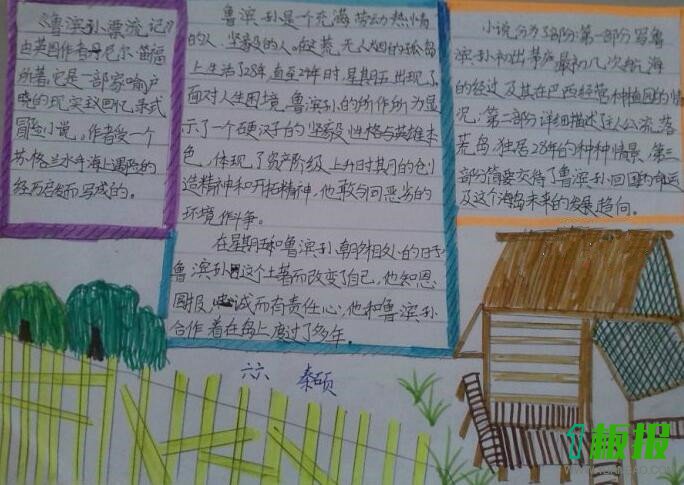 《鲁滨孙漂流记》
由英国作者丹尼尔·笛福
所著。它是一部家喻户
晓的现实主义回忆录式
冒险小说。作者受一个
苏格兰水手海上遇险的
经历启发而写成的。
鲁滨孙是个充满劳动热情
的人,坚毅的人。在这荒无人烟的孤岛
上生活了28年,直至24年时,星期五出现了
面对人生困境,鲁滨孙的所作所为显
示了一个硬汉子的坚毅性格与英雄本
色,体现了资产阶级上升时期的创
造精神和开拓精神,他敢与同恶劣的
环境作斗争。
在星期五和鲁滨孙朝夕相处的日子
鲁滨孙因这个土著而改变了自己,他知恩
图报,忠诚而有责任心,他和鲁滨孙
合作着在岛上度过了多年。
小说分为3部分:第一部分写鲁
滨孙初出茅庐,最初几次航海
的经过及其在巴西经营种植园的情
况;第二部分详细描述主人公流落
荒岛,独居28年的种种情景,第三
部份简要交待了鲁滨孙回国的命运
及这个海岛未来的发展趋向。
六六 秦硕
板报
WWW.1BANBAO.COM